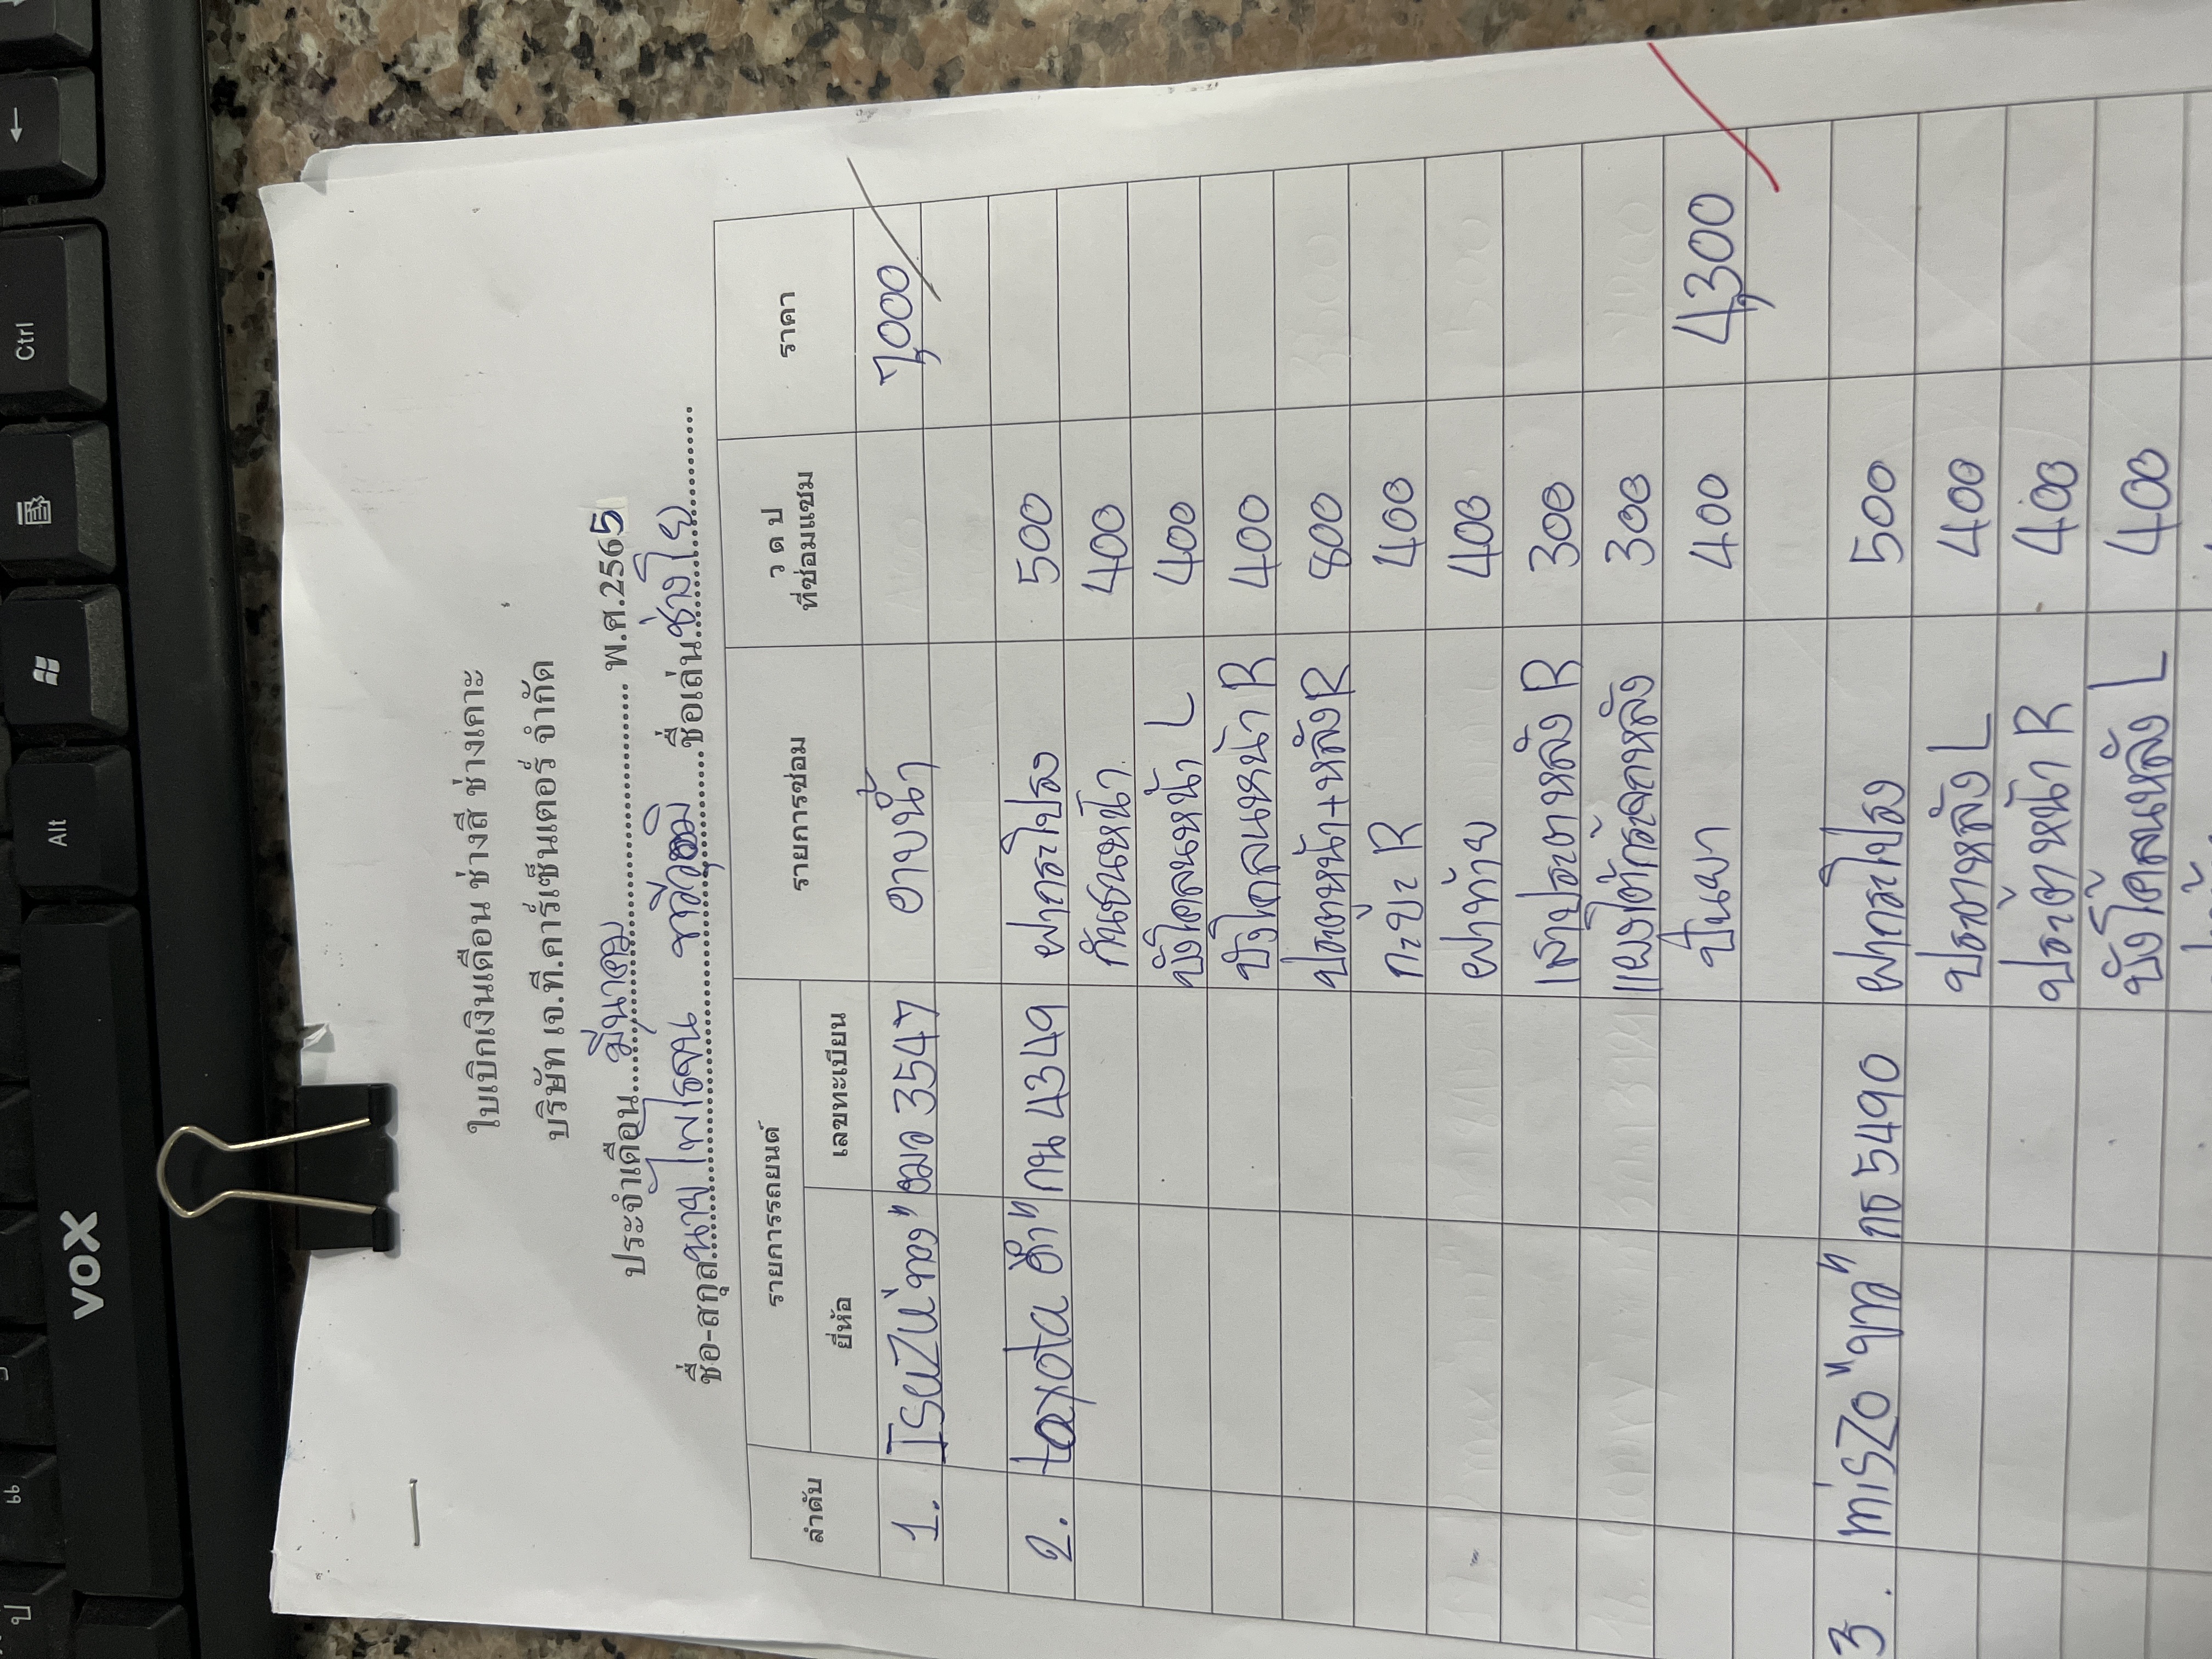 ใบเบิกเงินเดือน ช่างสี ช่างเคาะ
บริษัท เจ.ที.คาร์เซ็นเตอร์ จำกัด
ประจำเดือน....มีนาคม.... พ.ศ.2565
ชื่อ-สกุล นาย ไพโรจน์ ชื่อเล่น ช่างโย
ลำดับ รายการรถยนต์ รายการซ่อม ว ด ป ราคา
ยี่ห้อ เลขทะเบียน ที่ซ่อมแซม
1. ISUZU 3547 อาบน้ำ 7,000
2. toyota กน 4349 ฝากระโปรง 500
กันชนหน้า 400
บังโคลนหน้า L 400
บังโคลนหน้า R 400
ประตูหน้า+หลัง R 800
กะบะ R 400
ฝาท้าย 400
เสาประตูหลัง R 300
แผงใต้กระจกหลัง 300
ปั่นยา 400 4,300
3. misZo กธ 5490 ฝากระโปรง 500
ประตูหลัง L 400
ประตูหน้า R 400
บังโคลนหลัง L 400
VOX
Alt
Ctrl